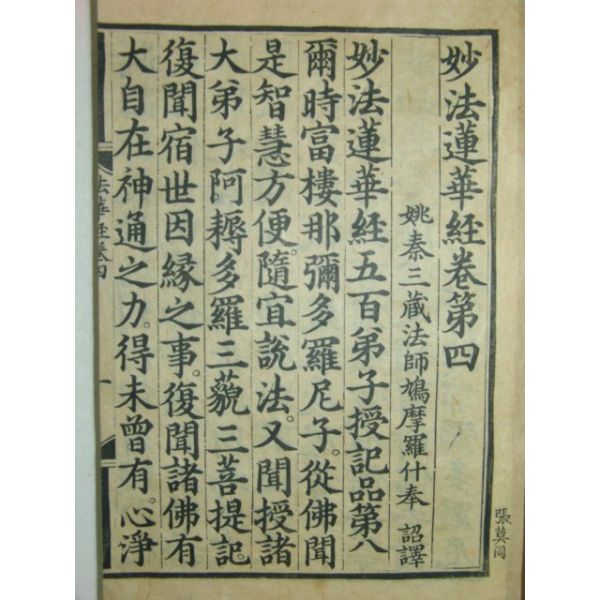 妙法蓮華經卷第四
姚秦三藏法師鳩摩羅什奉 詔譯
妙法蓮華經五百弟子授記品第八
爾時富樓那彌多羅尼子。從佛聞
是智慧方便。隨宜說法。又聞授諸
大弟子阿耨多羅三藐三菩提記。
復聞宿世因緣之事。復聞諸佛有
大自在神通之力。得未曾有。心淨
法華經卷四
一